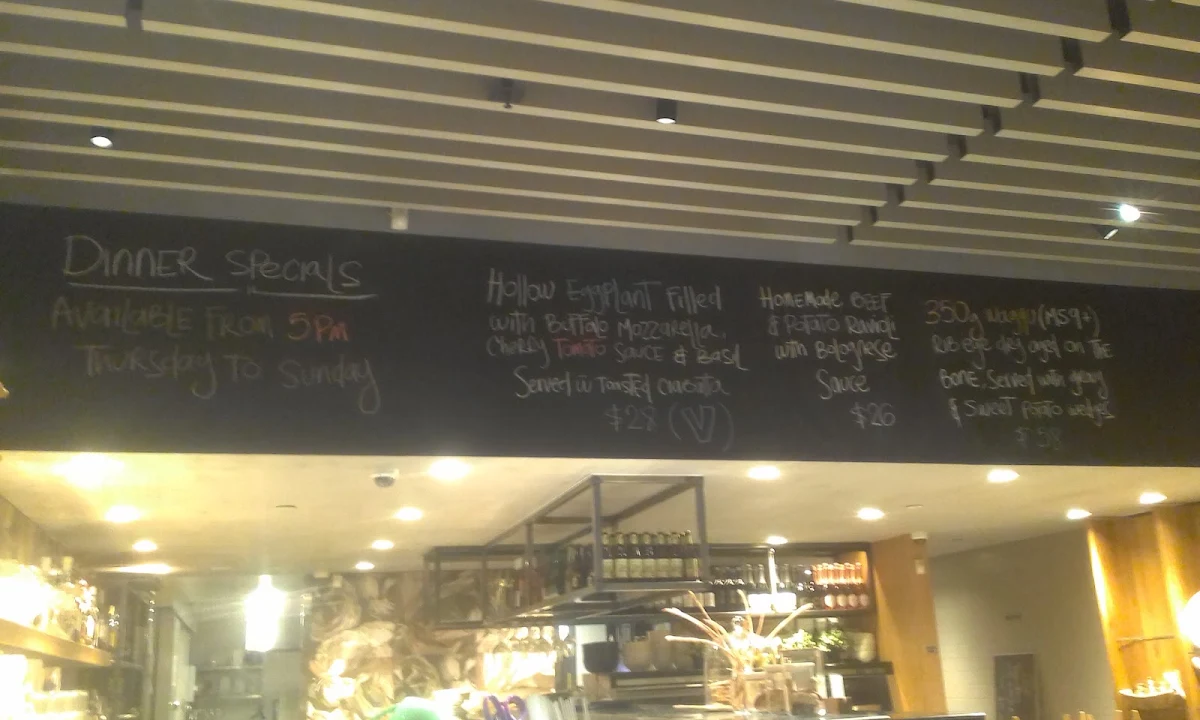 Dinner Specials
Available From 5pm
Thursday To Sunday
Hollow Eggplant Filled
with Buffalo Mozzarella,
Cherry Tomato Sauce & Basil
Served w Toasted Ciabatta
$28 (V)
Homemade Beef
& Potato Ravioli
with Bolognese
Sauce
$26
350g wagyu (MS9+)
Rib eye dry aged on The
Bone, Served with gravy
& Sweet Potato wedges